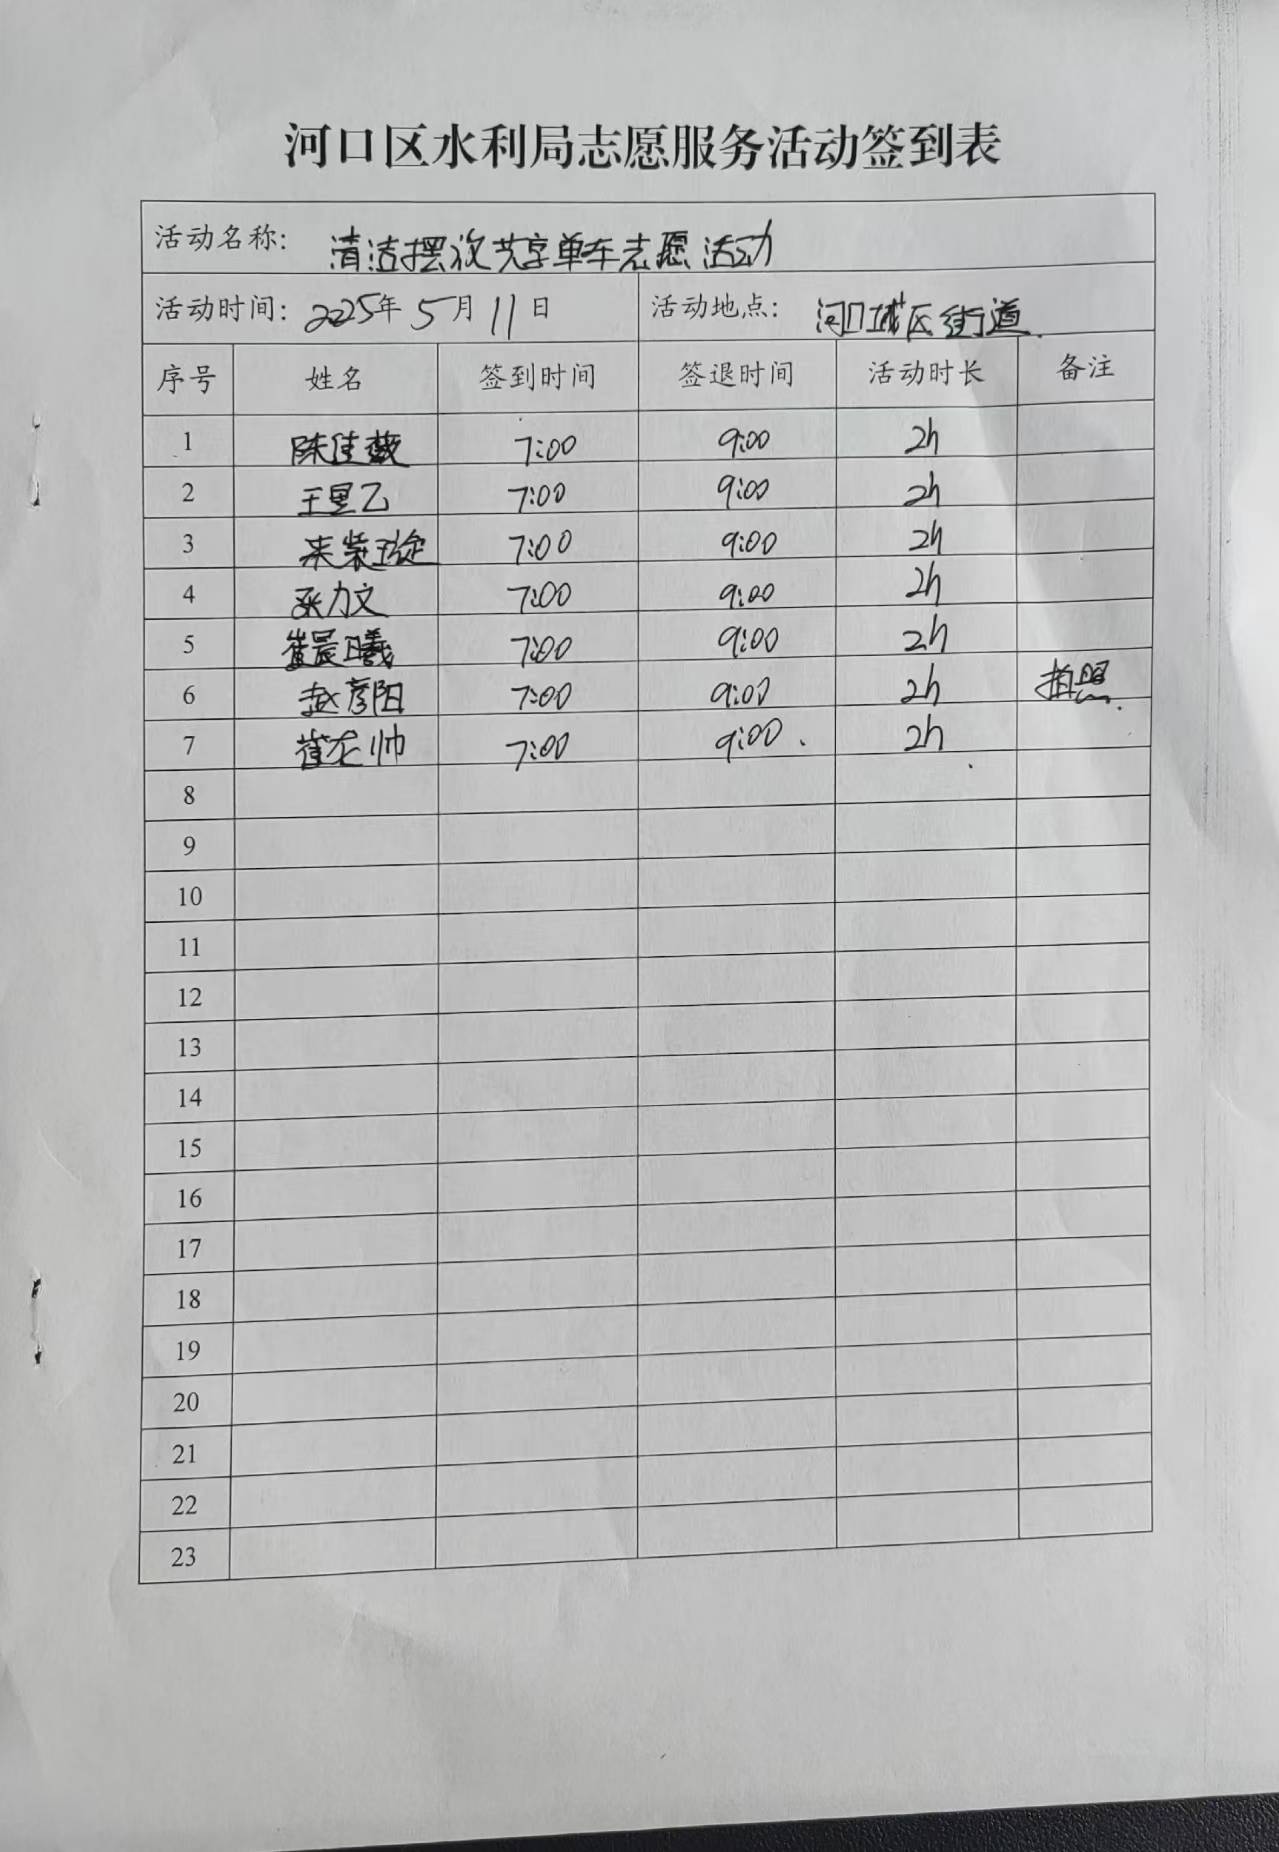 河口区水利局志愿服务活动签到表
活动名称: 清洁摆放共享单车志愿活动
活动时间: 2025年 5月 11日 活动地点: 河口城区街道
序号 姓名 签到时间 签退时间 活动时长 备注
1 陈佳薇 7:00 9:00 2h
2 王星乙 7:00 9:00 2h
3 7:00 9:00 2h
4 张力文 7:00 9:00 2h
5 崔晨曦 7:00 9:00 2h
6 赵彦阳 7:00 9:00 2h 拍照
7 7:00 9:00 2h
8
9
10
11
12
13
14
15
16
17
18
19
20
21
22
23